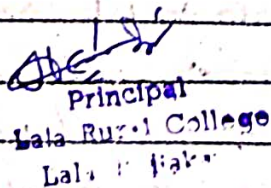 Principal
Lala Rural College
Lala